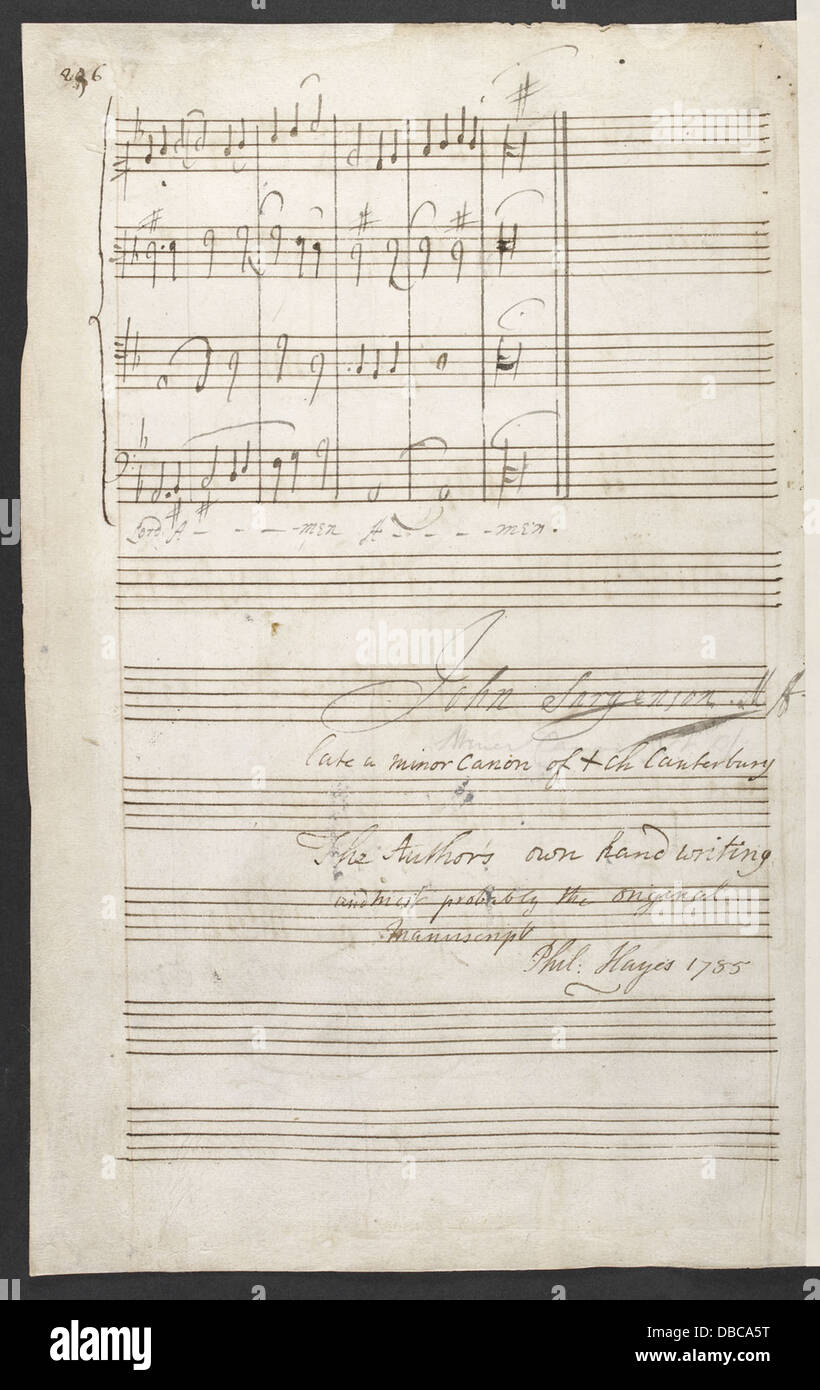 236
Lord A - - - - men A - - - - men.
John Sargenson. M A
late a minor Canon of + Ch Canterbury
The Author's own hand writing
and most probably the original
Manuscript
Phil: Hayes 1785
alamy
alamy
alamy
alamy
Image ID: DBCA5T
www.alamy.com